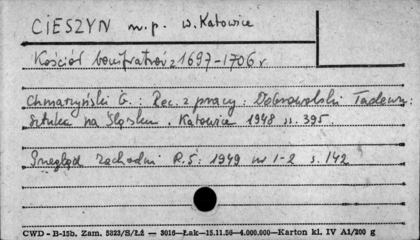 CIESZYN m.p. w. Katowice
Kościół bonifratrów z 1697-1706 r.
Chmarzyński G. : Rec. z pracy : Dobrowolski Tadeusz:
Sztuka na Śląsku. Katowice 1948 ss. 395
Przegląd Zachodni R. 5: 1949 nr 1-2 s. 142
CWD - B-15b. Zam. 5823/S/ŁŻ — 3016—Łak—15.11.56—4.000.000—Karton kl. IV A1/200 g